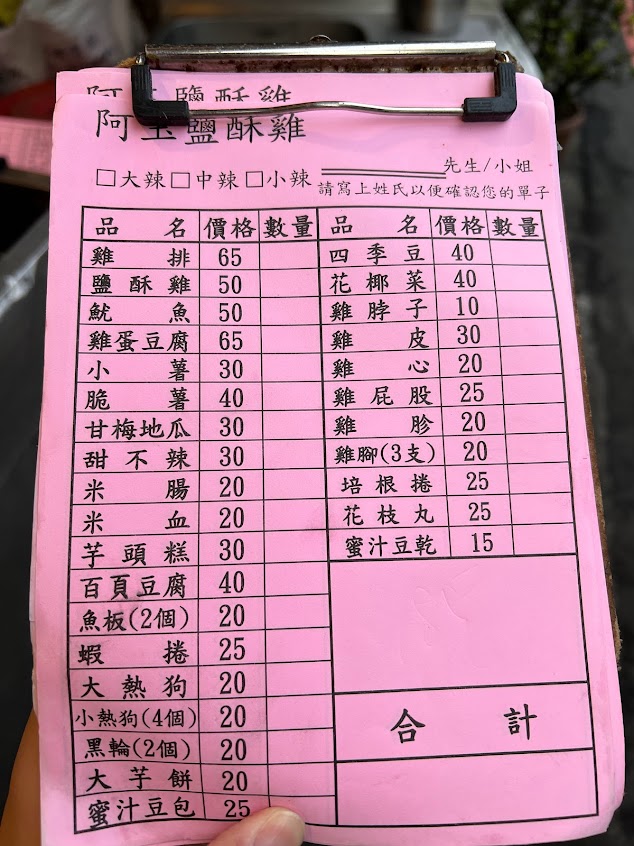 阿玉鹽酥雞
□大辣□中辣□小辣 先生/小姐
請寫上姓氏以便確認您的單子
品名 價格 數量
雞排 65
鹽酥雞 50
魷魚 50
雞蛋豆腐 65
小薯 30
脆薯 40
甘梅地瓜 30
甜不辣 30
米腸 20
米血 20
芋頭糕 30
百頁豆腐 40
魚板(2個) 20
蝦捲 25
大熱狗 20
小熱狗(4個) 20
黑輪(2個) 20
大芋餅 20
蜜汁豆包 25
品名 價格 數量
四季豆 40
花椰菜 40
雞脖子 10
雞皮 30
雞心 20
雞屁股 25
雞胗 20
雞腳(3支) 20
培根捲 25
花枝丸 25
蜜汁豆乾 15
合計